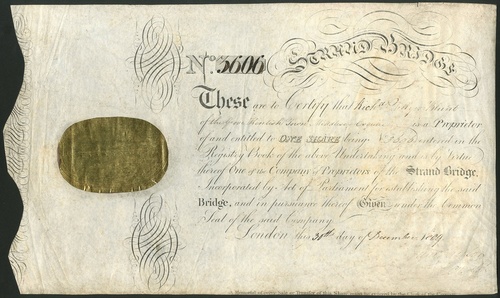 No. 3606 STRAND BRIDGE
These are to Certify that
of is a Proprietor
of and entitled to ONE SHARE being No. entered in the
Register Book of the above Undertaking and is by virtue
thereof One of the Company of Proprietors of the Strand Bridge,
Incorporated by Act of Parliament for establishing the said
Bridge, and in pursuance thereof Given under the Common
Seal of the said Company
London this 30th day of December 1809